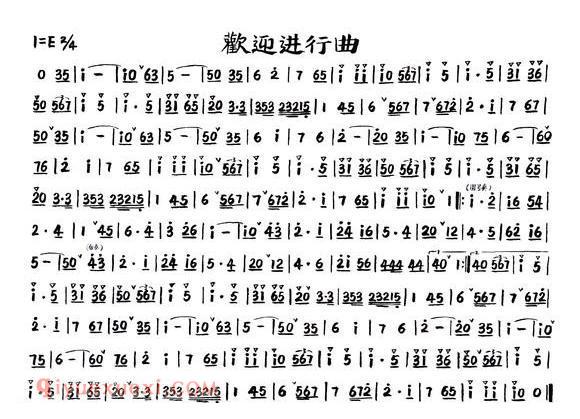 歡迎进行曲
1=E 2/4
0 35 | i — | i0 63 | 5 — | 50 35 | 6 2 | 7 65 | i ii | i0 567 | i 5 | i · 5 | 31 36 |
50 567 | i 5 | i · 5 | 31 65 | 20 3·3 | 353 23215 | 1 45 | 6 567 | 7 672 | 2 · i | 7 67 |
50 35 | i — | i0 63 | 5 — | 50 35 | 6 i | 7 6 | 2 — | 20 35 | i — | i0 75 | 6 — | 60
76 | 2 i | 7 65 | i ii | i0 567 | i 5 | i · 5 | 31 36 | 50 567 | i 5 | i · 5 | 31 65 |
20 3·3 | 353 23215 | 1 45 | 6 567 | 7 672 | 2 · i | 7 65 | i ii | i0 1 :|: i · 2 | i6 54 |
2 · 4 | 1 45 | 6 · 4 | 3 26 | i — | i0 43 | 2 · i | 24 i6 | 5 · 4 | 20 12 | 4 · 5 | 62 i6 |
5 — | 50 43 | 2 · i | 24 i6 | 5 · 4 | 20 12 | 4 · 6 | 2i 56 | 444 44 | 40 1 :| 40 567 | i 5 |
i · 5 | 31 36 | 50 567 | i 5 | i · 5 | 31 65 | 20 3·3 | 353 23215 | 1 45 | 6 567 | 7 672 |
2 · i | 7 67 | 50 35 | i — | i0 63 | 5 — | 50 35 | 6 i | 7 6 | 2 — | 20 35 | i — | i0
75 | 6 — | 60 76 | 2 i | 7 65 | i ii | i0 567 | i 5 | i · 5 | 31 36 | 50 567 | i 5 |
i · 5 | 31 65 | 20 3·3 | 353 23215 | 1 45 | 6 567 | 7 672 | 2 · i | 7 67 | i 2 | i 0 ‖